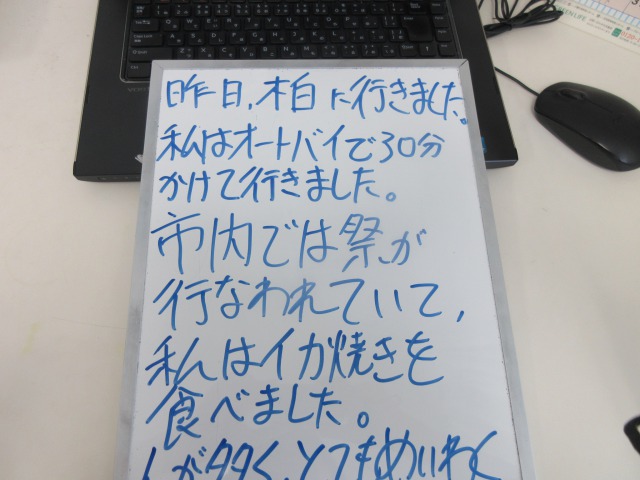 昨日、柏に行きました。
私はオートバイで30分
かけて行きました。
市内では祭が
行なわれていて、
私はイカ焼きを
食べました。
人が多く、とてもめいわく